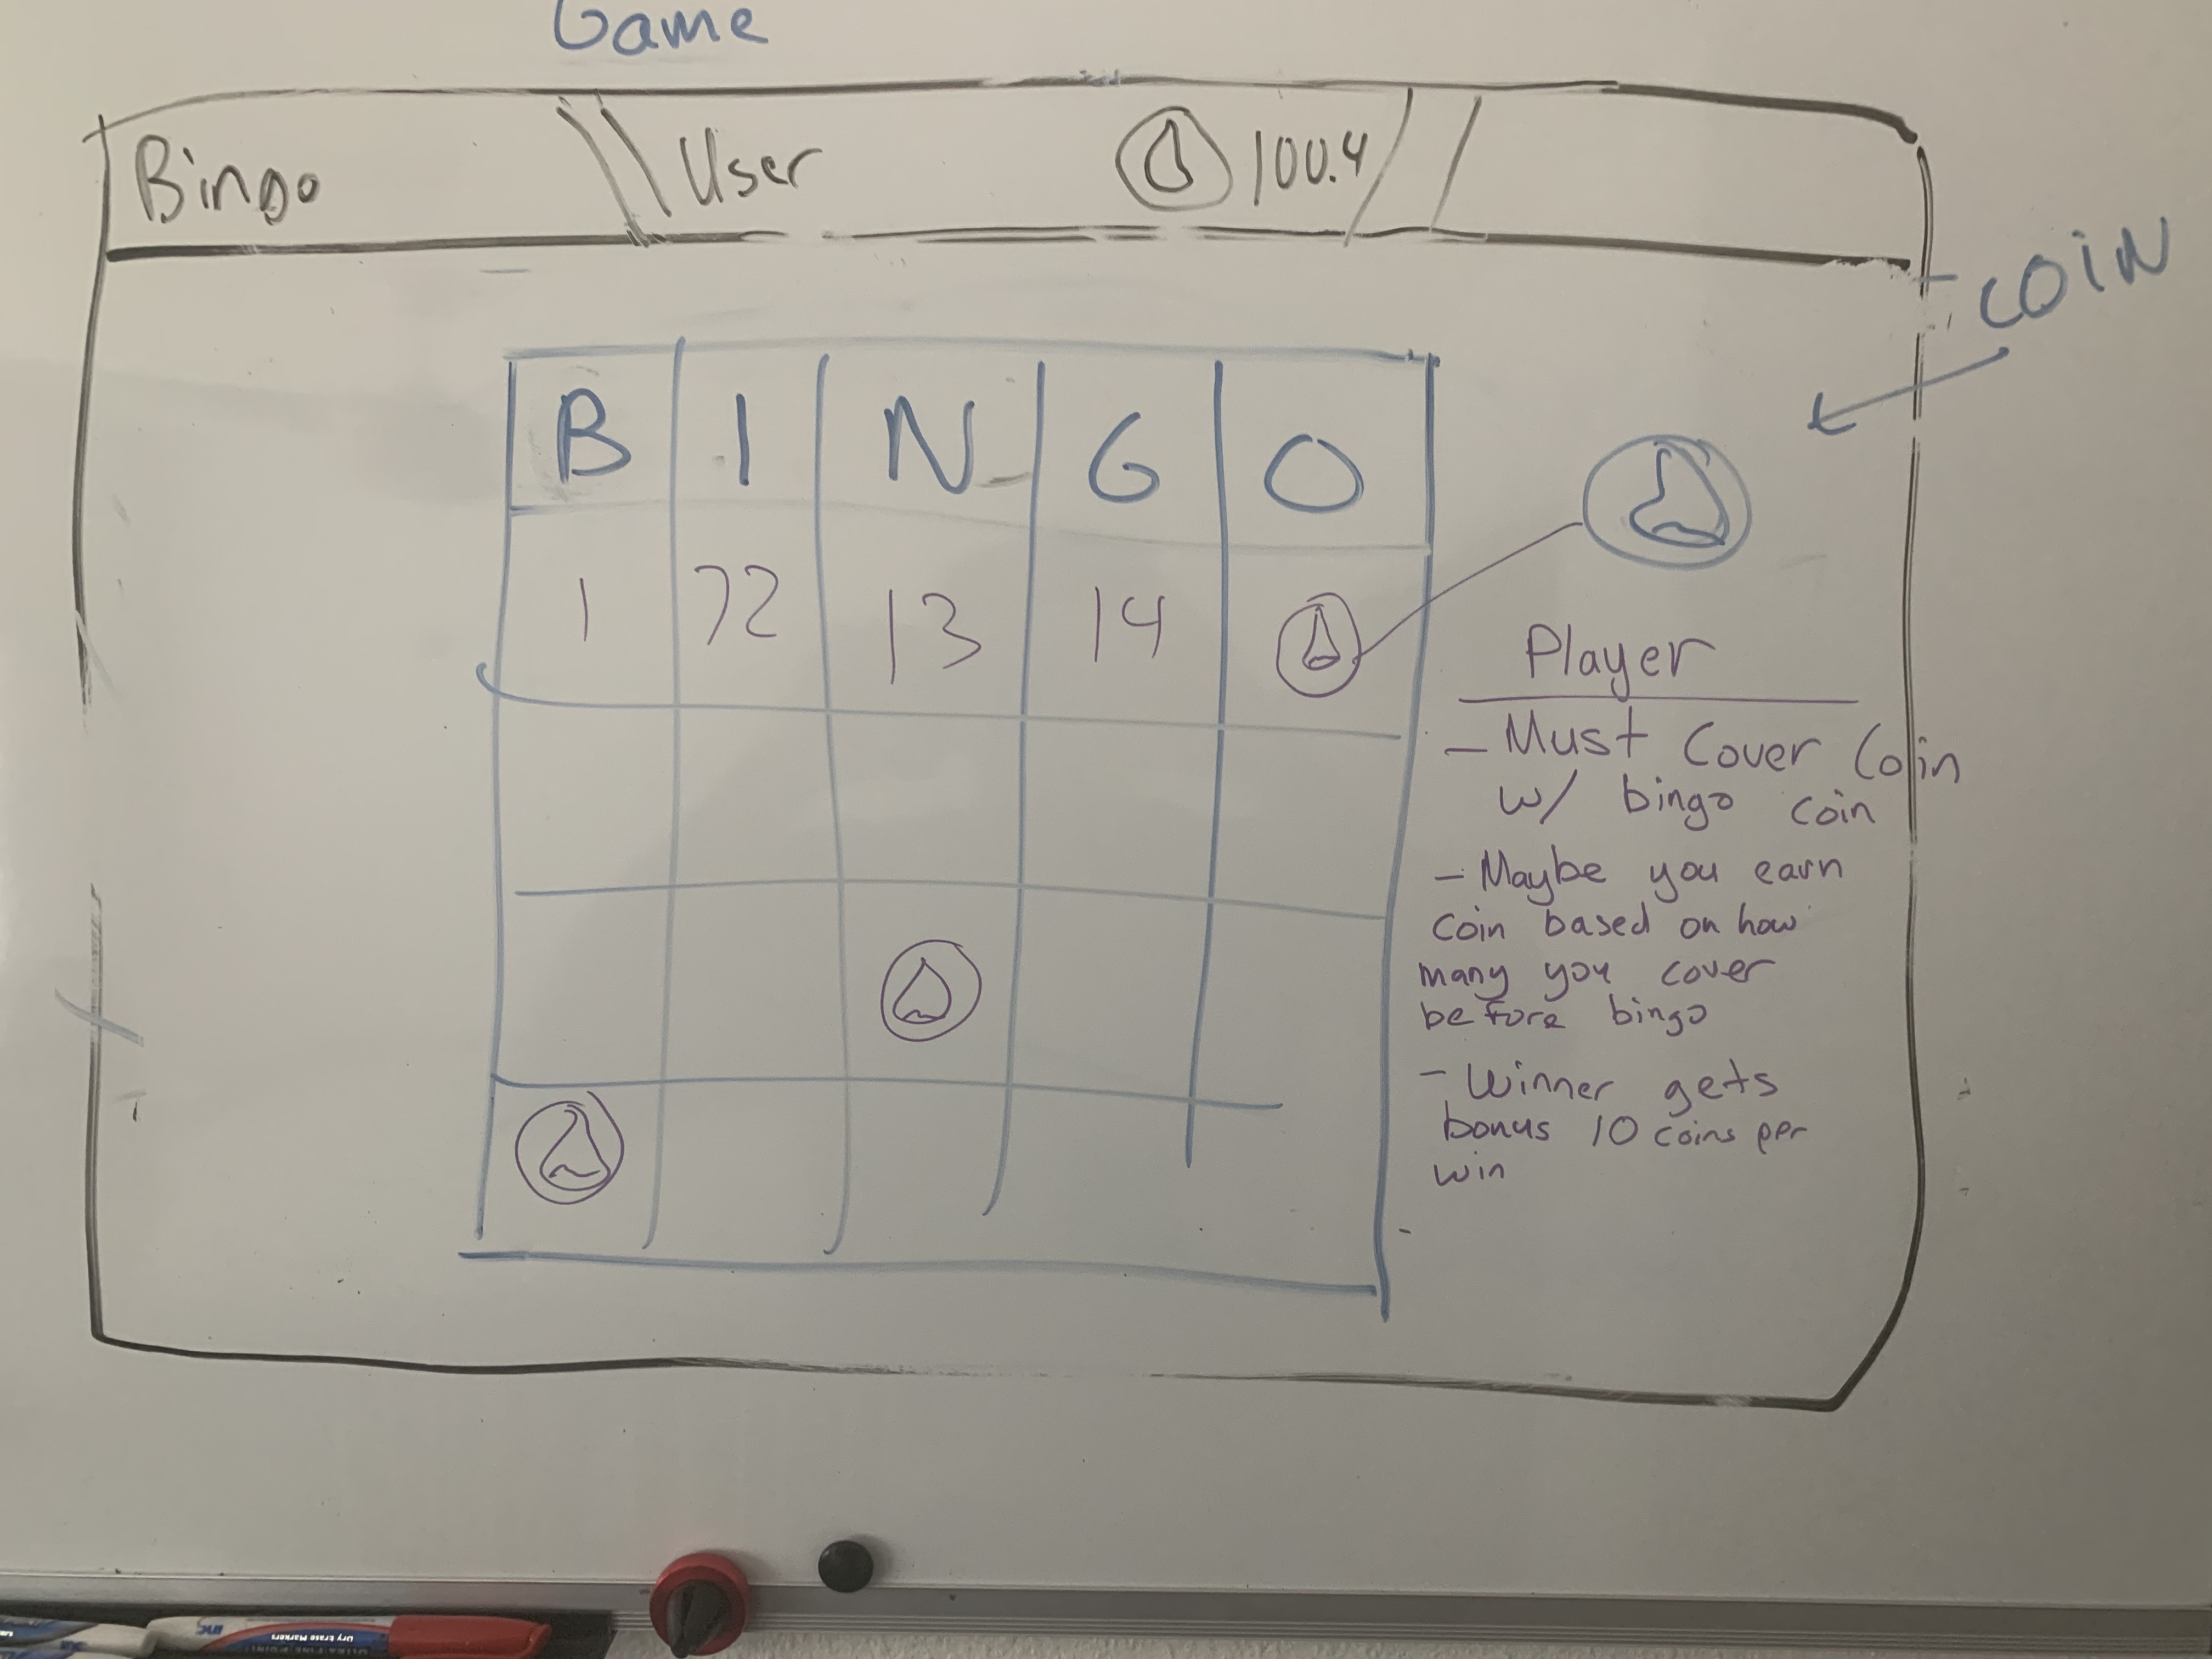 Game
Bingo User 100.4
COIN
B I N G O
1 72 13 14
Player
- Must Cover Coin
w/ bingo coin
- Maybe you earn
coin based on how
many you cover
before bingo
- Winner gets
bonus 10 coins per
win
Dry Erase Markers